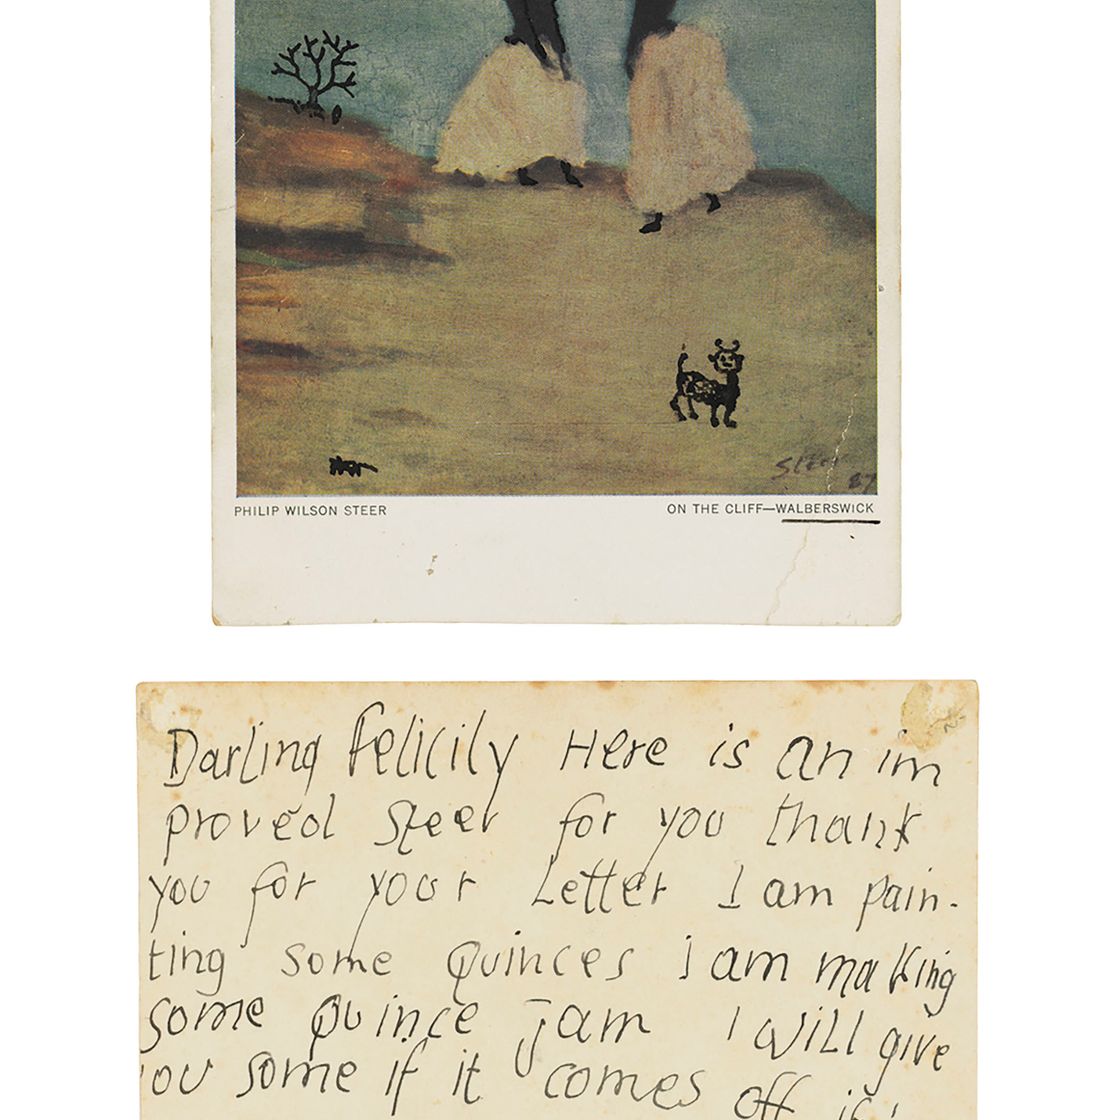 Steer
87
PHILIP WILSON STEER
ON THE CLIFF—WALBERSWICK
Darling Felicity Here is an im
proved Steer for you thank
you for your Letter I am pain-
ting some Quinces I am making
some Quince jam I will give
ou some if it comes off